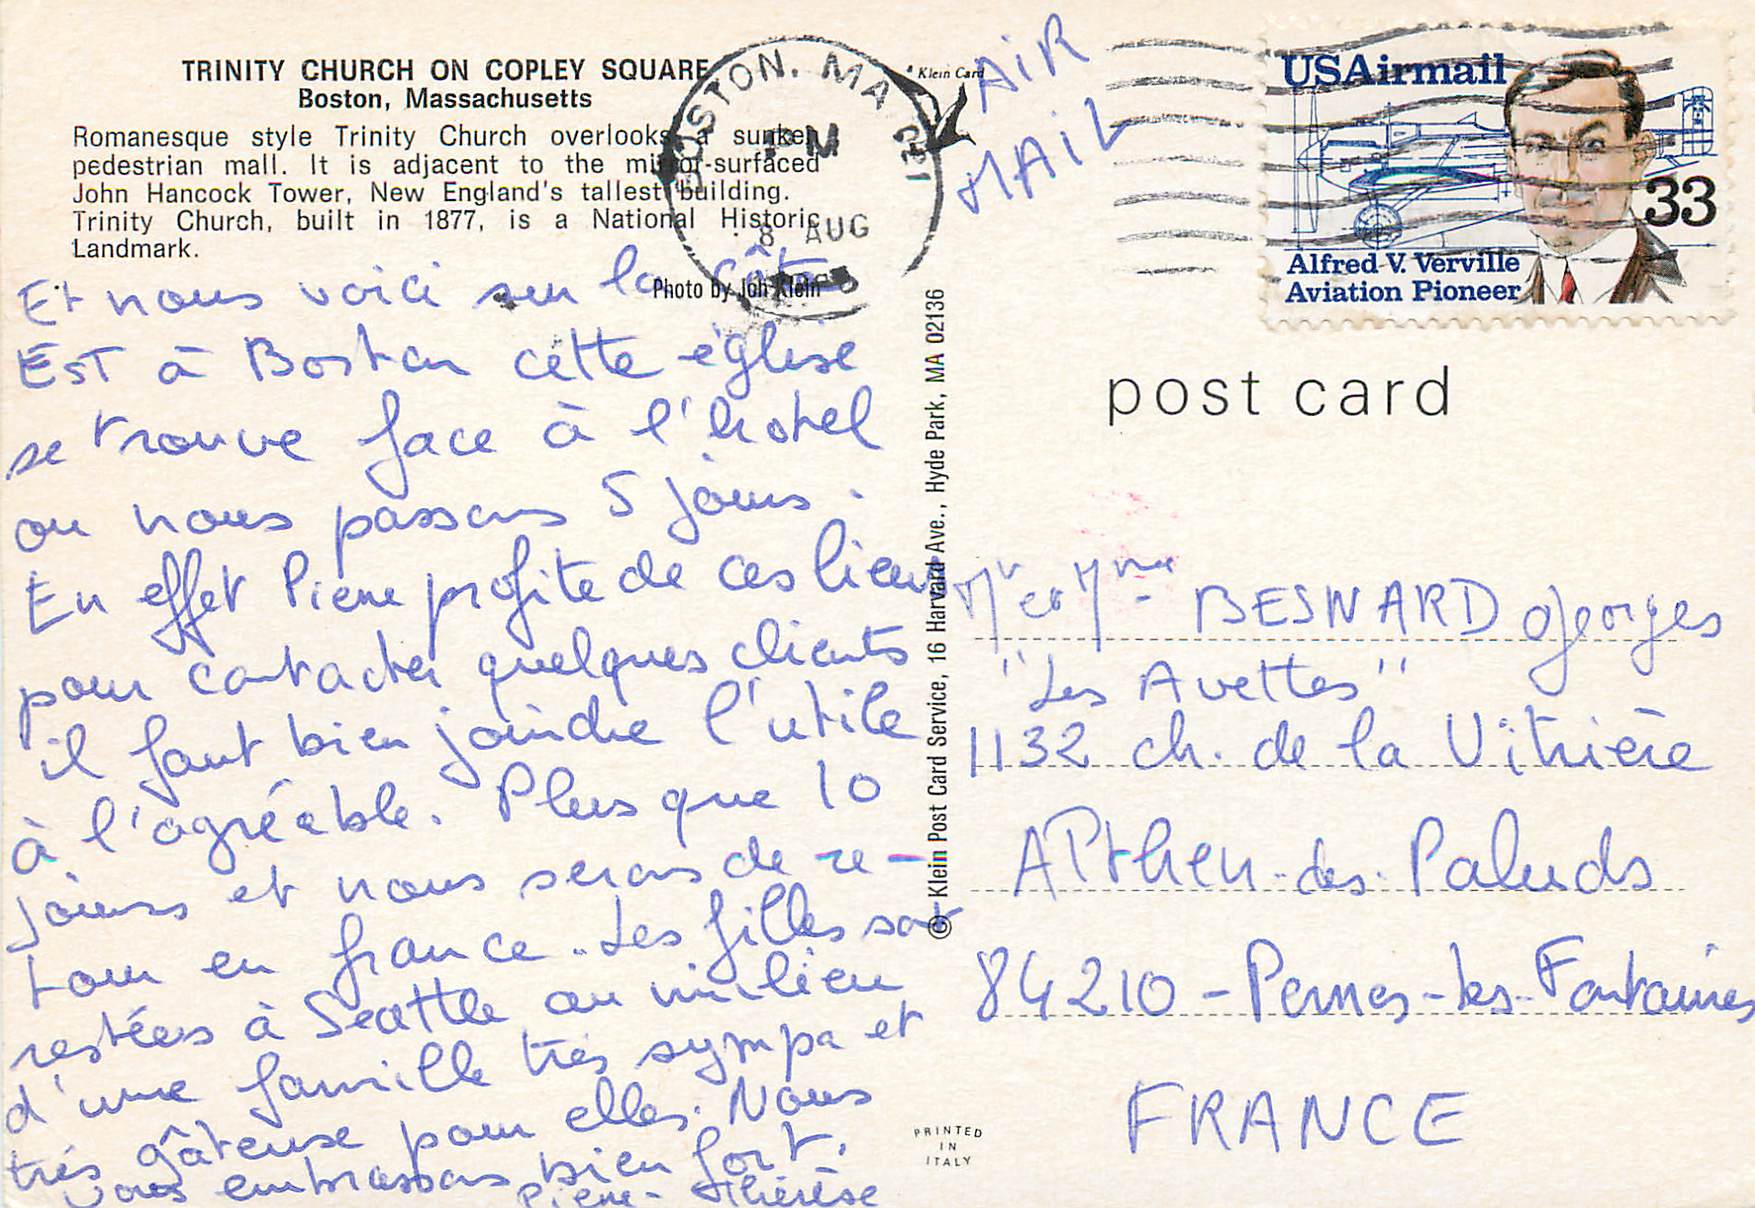 TRINITY CHURCH ON COPLEY SQUARE
Boston, Massachusetts
Romanesque style Trinity Church overlooks a sunken
pedestrian mall. It is adjacent to the mirror-surfaced
John Hancock Tower, New England's tallest building.
Trinity Church, built in 1877, is a National Historic
Landmark.
Photo by Klein
Klein Card
BOSTON, MA 021
PM
8 AUG
AIR
MAIL
USAirmail
33
Alfred V. Verville
Aviation Pioneer
Et nous voici sur la côte
EST à Boston cette église
se trouve face à l'hotel
ou nous passons 5 jours.
En effet Pierre profite de ces lieux
pour contacter quelques clients
il faut bien joindre l'utile
à l'agréable. Plus que 10
jours et nous serons de re-
tour en france. Les filles sont
restées à Seattle au milieu
d'une famille très sympa et
très gâteuse pour elles. Nous
vous embrassons bien fort.
Pierre - Thérèse
© Klein Post Card Service, 16 Harvard Ave., Hyde Park, MA 02136
post card
Mr et Mme - BESNARD Georges
"Les Avettes"
1132 ch. de la Vitrière
ALthen-des-Paluds
84210 - Pernes-les-Fontaines
FRANCE
PRINTED
IN
ITALY